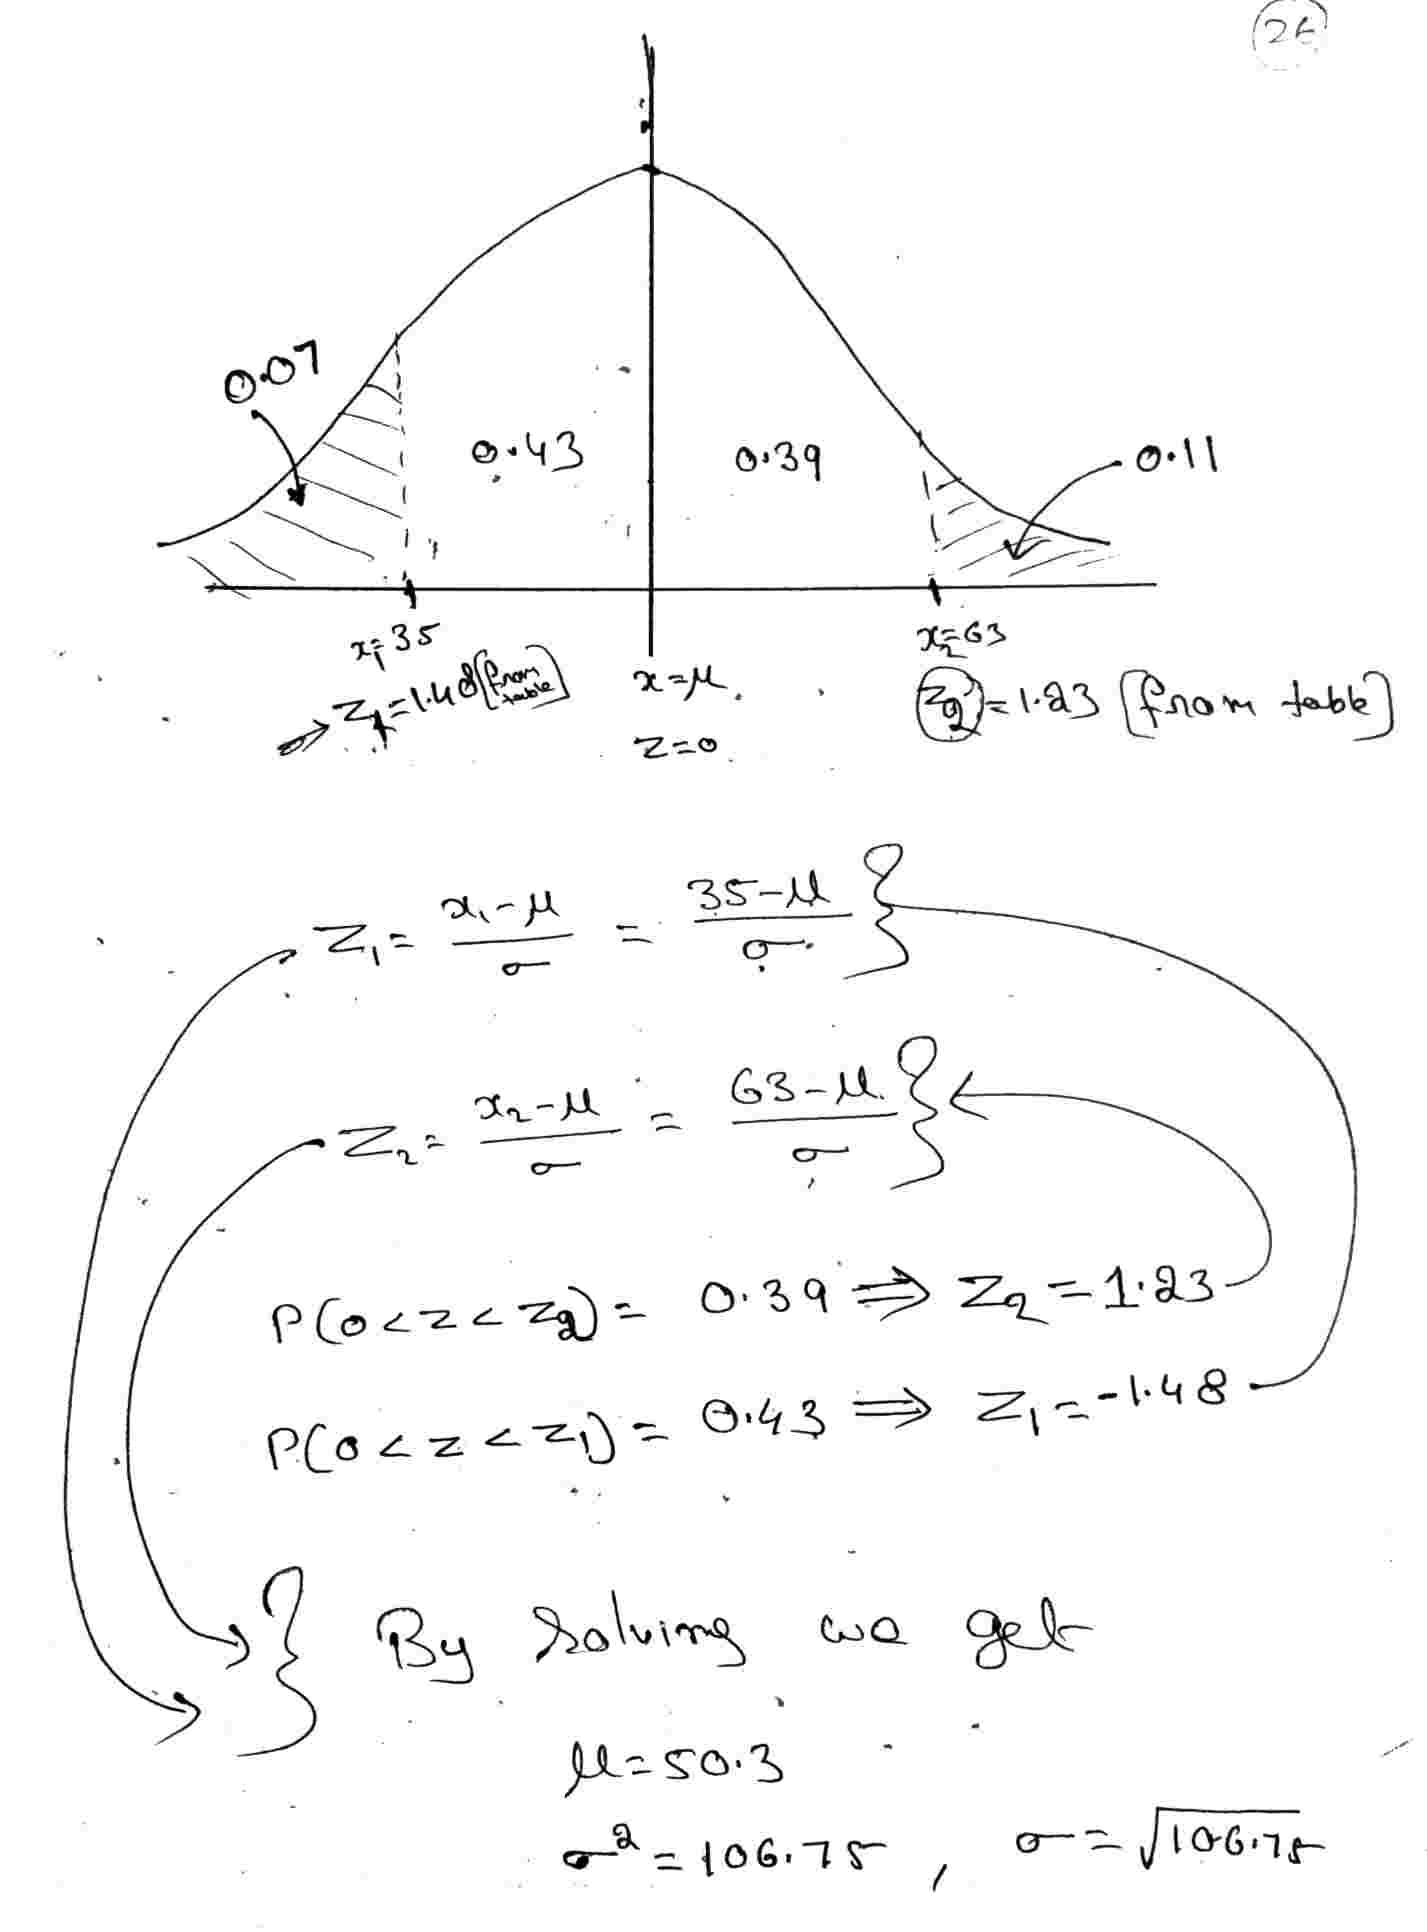 26
0.07
0.43
0.39
0.11
x₁=35
x₂=63
Z₁=1.48 [from table]
x=μ.
Z₂=1.23 [from table]
z=0
Z₁ = (x₁-μ)/σ = (35-μ)/σ
Z₂ = (x₂-μ)/σ = (63-μ)/σ
P(0<z<z₂) = 0.39 ⇒ Z₂ = 1.23
P(0<z<z₁) = 0.43 ⇒ Z₁ = -1.48
By Solving we get
μ=50.3
σ² = 106.75 , σ = √106.75